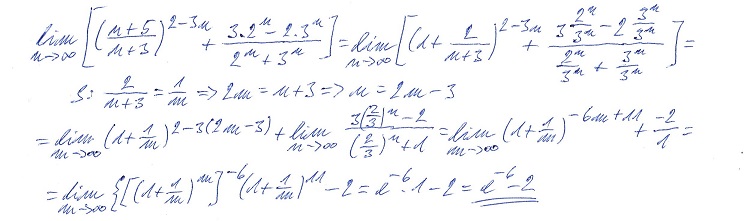 lim n→∞ [((n+5)/(n+3))^(2-3n) + (3·2^n - 2·3^n)/(2^n + 3^n)] = lim n→∞ [(1 + 2/(n+3))^(2-3n) + (3 2^n/3^n - 2 3^n/3^n)/(2^n/3^n + 3^n/3^n)] =
S: 2/(n+3) = 1/m => 2m = n+3 => n = 2m-3
= lim m→∞ (1 + 1/m)^(2-3(2m-3)) + lim n→∞ (3(2/3)^n - 2)/((2/3)^n + 1) = lim m→∞ (1 + 1/m)^(-6m+11) + -2/1 =
= lim m→∞ {[(1 + 1/m)^m]^-6 (1 + 1/m)^11 - 2 = e^-6 · 1 - 2 = e^-6 - 2